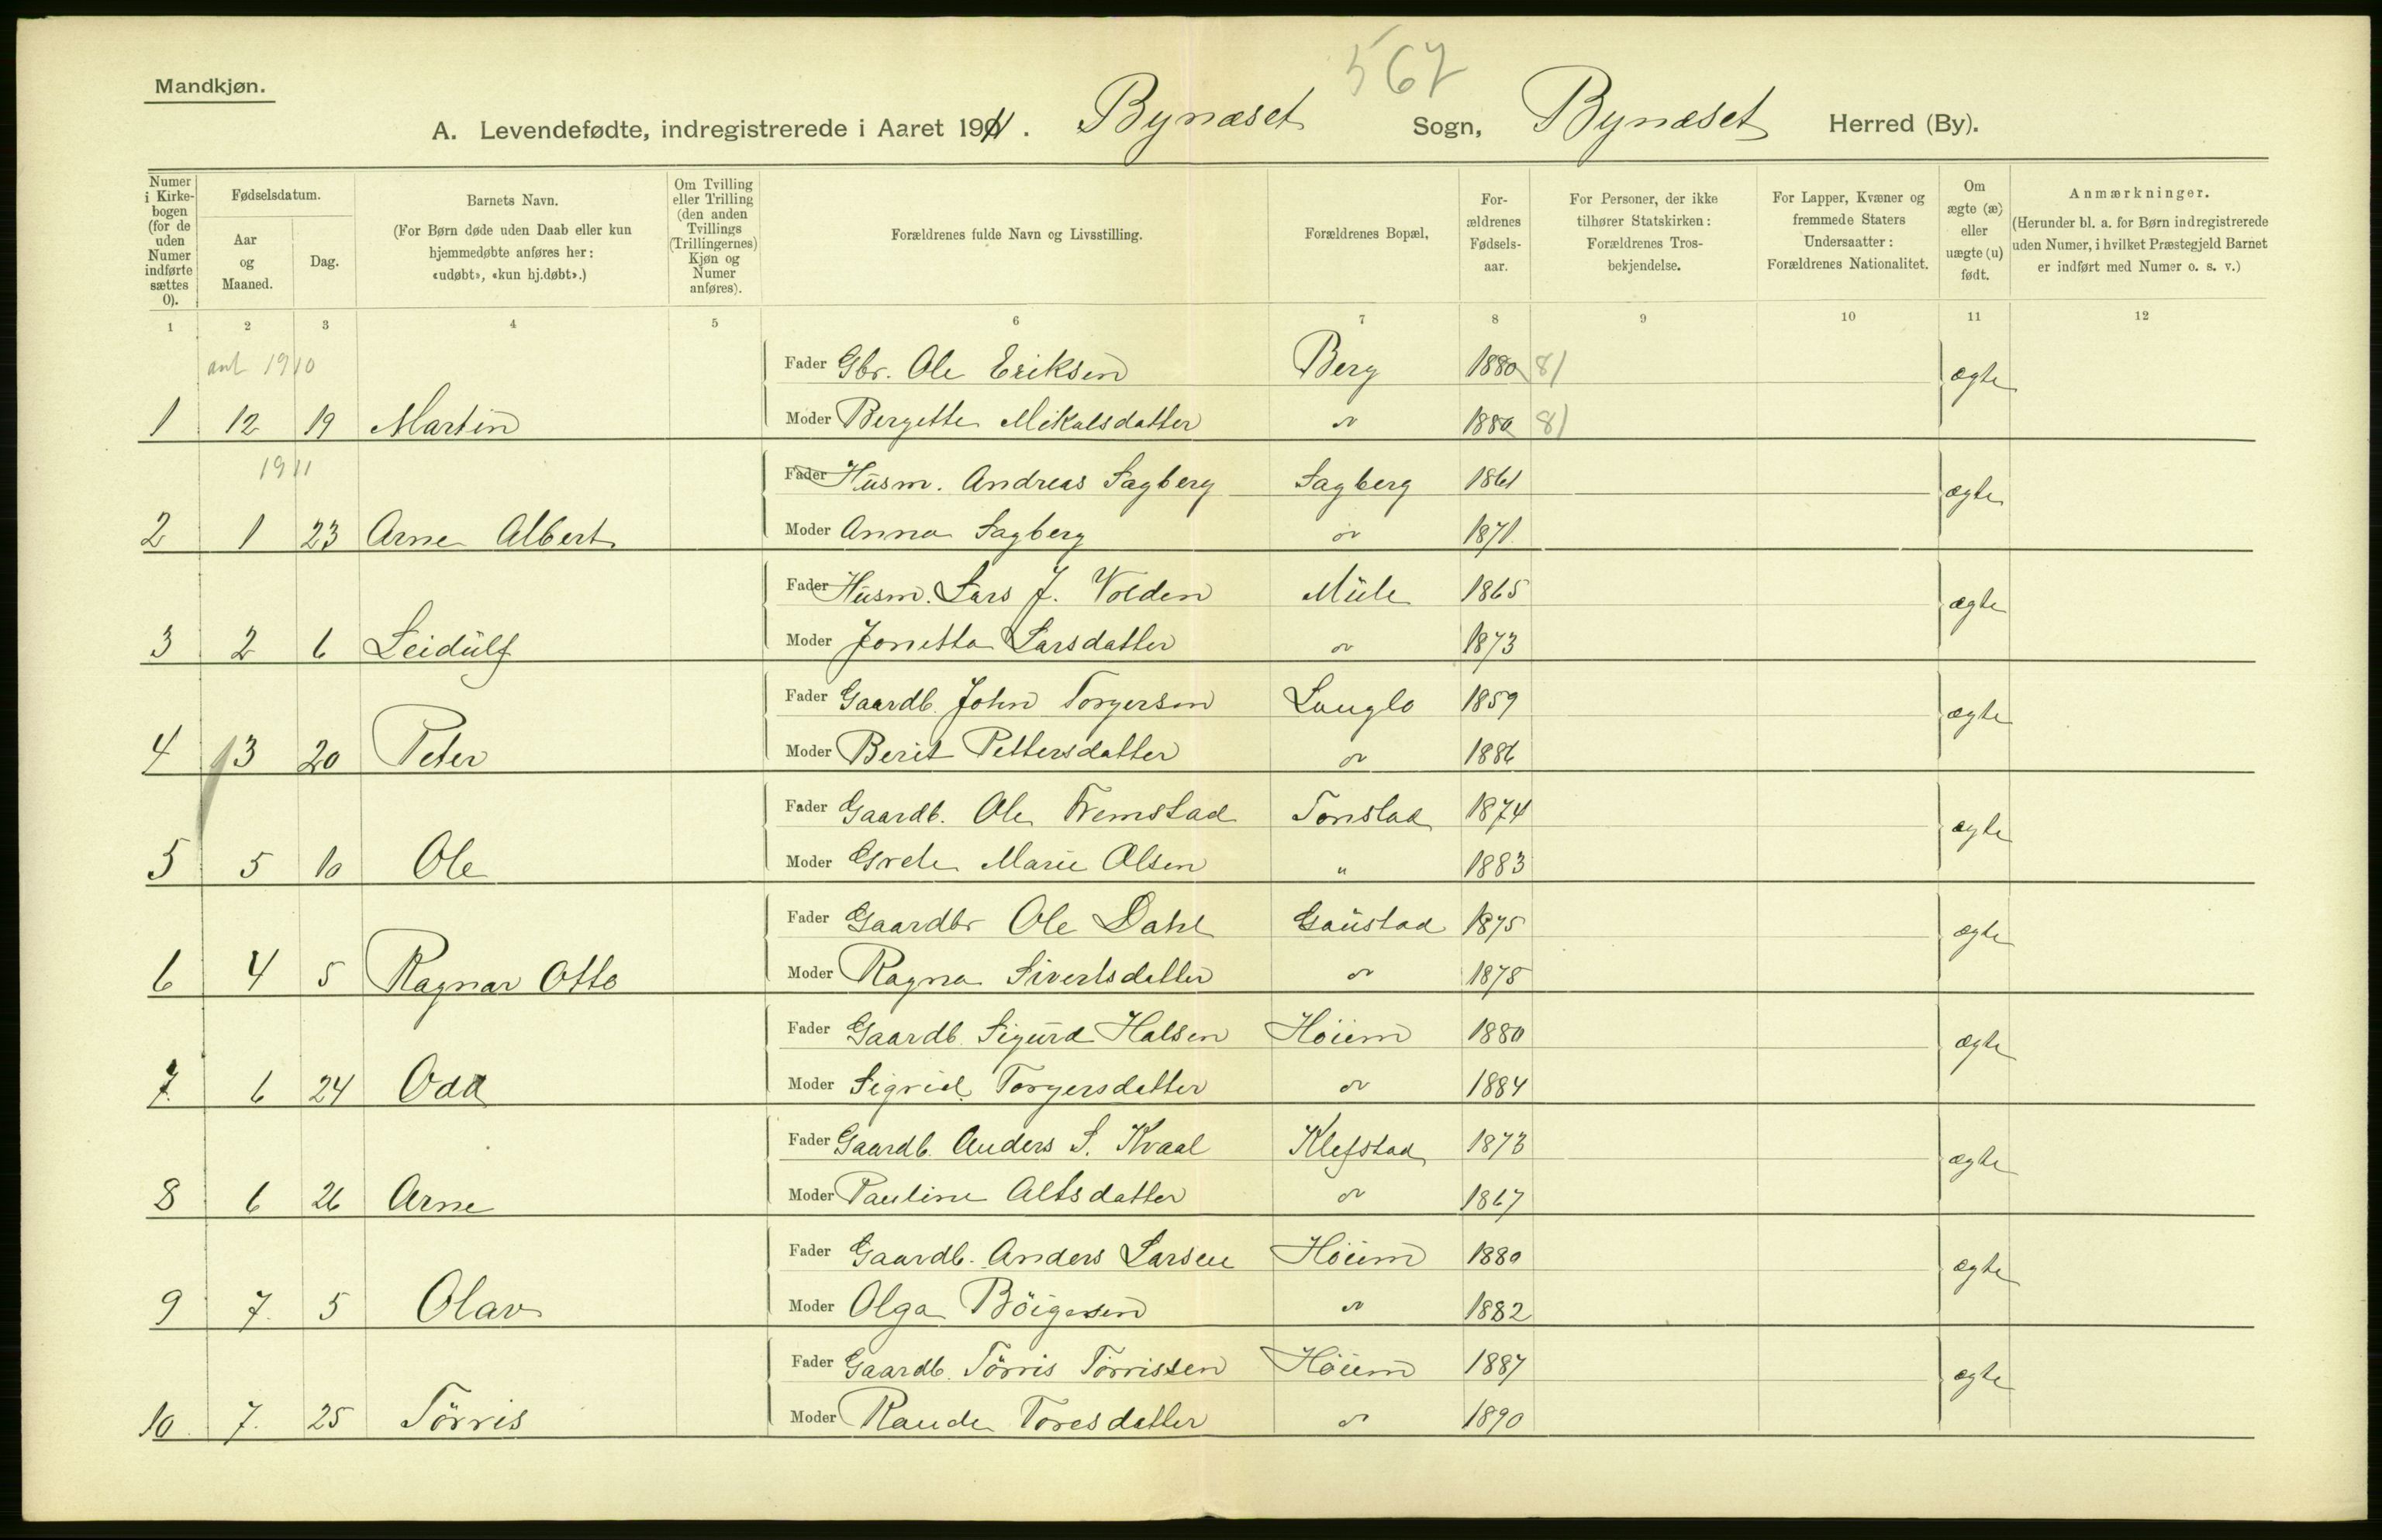 567
Mandkjøn.
A. Levendefødte, indregistrerede i Aaret 1911. Bynæset Sogn, Bynæset Herred (By).
Numer i Kirkebogen (for de uden Numer indførte sættes 0).
Fødselsdatum.
Aar og Maaned.
Dag.
Barnets Navn.
(For Børn døde uden Daab eller kun hjemmedøbte anføres her: «udøbt», «kun hj.døbt».)
Om Tvilling eller Trilling (den anden Tvillings (Trillingernes) Kjøn og Numer anføres).
Forældrenes fulde Navn og Livsstilling.
Forældrenes Bopæl,
For-ældrenes Fødsels-aar.
For Personer, der ikke tilhører Statskirken: Forældrenes Tros-bekjendelse.
For Lapper, Kvæner og fremmede Staters Undersaatter: Forældrenes Nationalitet.
Om ægte (æ) eller uægte (u) født.
Anmærkninger.
(Herunder bl. a. for Børn indregistrerede uden Numer, i hvilket Præstegjeld Barnet er indført med Numer o. s. v.)
1 2 3 4 5 6 7 8 9 10 11 12
ant 1910 Fader Gbr. Ole Eriksen Berg 1880 81 ægte
1 12 19 Martin Moder Bergette Mikalsdatter " 1880 81
1911 Fader Husm. Andreas Sagberg Sagberg 1861 ægte
2 1 23 Arne Albert Moder Anna Sagberg " 1871
Fader Husm. Lars J. Volden Mule 1865 ægte
3 2 6 Leidulf Moder Jonetta Larsdatter " 1873
Fader Gaardb. John Torgersen Langlo 1859 ægte
4 3 20 Peter Moder Berit Pettersdatter " 1886
Fader Gaardb. Ole Fremstad Tonstad 1874 ægte
5 5 10 Ole Moder Grete Marie Olsen " 1883
Fader Gaardbr Ole Dahl Gaustad 1875 ægte
6 4 5 Ragnar Otto Moder Ragna Sivertsdatter " 1878
Fader Gaardb. Sigurd Halsen Höiem 1880 ægte
7. 6 24 Odd Moder Sigrid Torgersdatter " 1884
Fader Gaardb. Anders S. Kvaal Klefstad 1873 ægte
8 6 26 Arne Moder Pauline Altsdatter " 1867
Fader Gaardb. Anders Larsen Höiem 1880 ægte
9 7. 5 Olav Moder Olga Böigesen " 1882
Fader Gaardb. Törris Törrissen Höiem 1887 ægte
10. 7. 25 Törris Moder Toresdatter " 1890